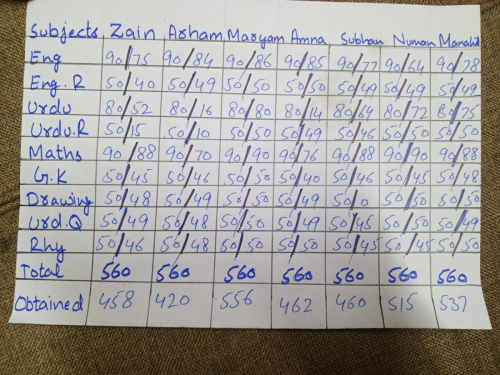 Subjects Zain Arham Maryam Amna Subhan Numan Manahil
Eng 90/75 90/84 90/86 90/85 90/77 90/64 90/78
Eng.R 50/40 50/49 50/50 50/50 50/49 50/49 50/49
Urdu 80/52 80/16 80/80 80/14 80/64 80/72 80/75
Urdu.R 50/15 50/10 50/50 50/49 50/46 50/50 50/50
Maths 90/88 90/70 90/90 90/76 90/88 90/90 90/88
G.K 50/45 50/46 50/50 50/40 50/46 50/45 50/48
Drawing 50/48 50/49 50/50 50/50 50/0 50/50 50/50
Urd.Q 50/49 50/48 50/50 50/49 50/45 50/50 50/49
Rhy 50/46 50/48 50/50 50/50 50/45 50/45 50/50
Total 560 560 560 560 560 560 560
Obtained 458 420 556 462 460 515 537